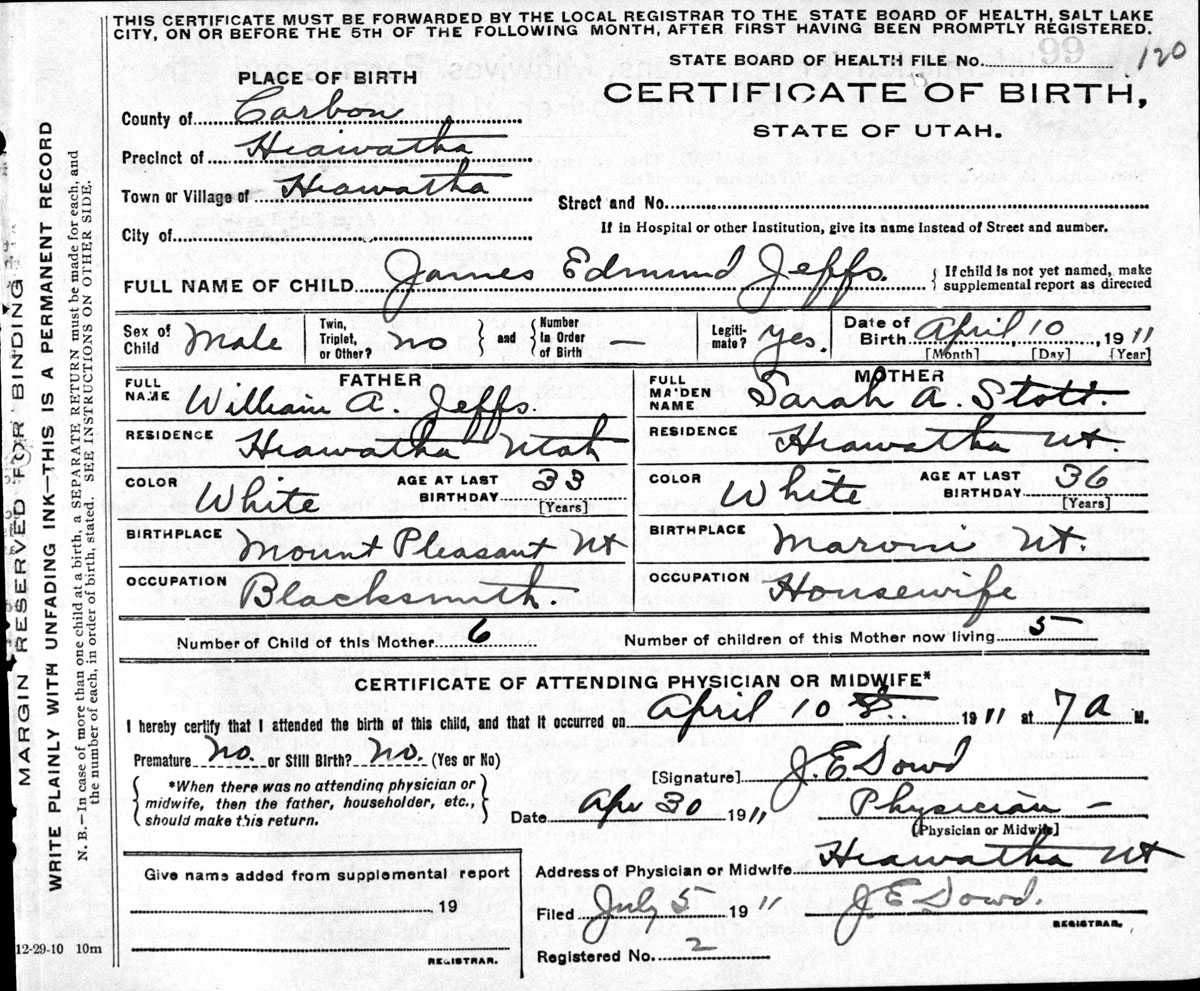 THIS CERTIFICATE MUST BE FORWARDED BY THE LOCAL REGISTRAR TO THE STATE BOARD OF HEALTH, SALT LAKE
CITY, ON OR BEFORE THE 5TH OF THE FOLLOWING MONTH, AFTER FIRST HAVING BEEN PROMPTLY REGISTERED.
STATE BOARD OF HEALTH FILE No. 120
PLACE OF BIRTH
CERTIFICATE OF BIRTH,
STATE OF UTAH.
County of Carbon
Precinct of Hiawatha
Town or Village of Hiawatha
Street and No.
City of
If in Hospital or other Institution, give its name instead of Street and number.
FULL NAME OF CHILD James Edmund Jeffs. { If child is not yet named, make
supplemental report as directed
Sex of Child Male Twin, Triplet, or Other? no } and { Number in Order of Birth — Legiti-mate? yes. Date of Birth April 10, 1911
[Month] [Day] [Year]
FATHER
FULL NAME William A. Jeffs.
RESIDENCE Hiawatha Utah
COLOR White AGE AT LAST BIRTHDAY 33 [Years]
BIRTHPLACE Mount Pleasant Ut
OCCUPATION Blacksmith.
MOTHER
FULL MAIDEN NAME Sarah A. Stott.
RESIDENCE Hiawatha Ut.
COLOR White AGE AT LAST BIRTHDAY 36 [Years]
BIRTHPLACE Maroni Ut.
OCCUPATION Housewife
Number of Child of this Mother 6 Number of children of this Mother now living 5
CERTIFICATE OF ATTENDING PHYSICIAN OR MIDWIFE*
I hereby certify that I attended the birth of this child, and that it occurred on April 10 1911 at 7 a M.
Premature no. or Still Birth? no. (Yes or No)
[Signature] J. E Dowd
{ *When there was no attending physician or
midwife, then the father, householder, etc.,
should make this return. }
Date Apr 30 1911 Physician —
(Physician or Midwife]
Address of Physician or Midwife Hiawatha Ut
Give name added from supplemental report
19
REGISTRAR.
Filed July 5 1911 J. E Dowd.
REGISTRAR.
Registered No. 2
12-29-10 10m
MARGIN RESERVED FOR BINDING
WRITE PLAINLY WITH UNFADING INK—THIS IS A PERMANENT RECORD
N. B.—In case of more than one child at a birth, a SEPARATE RETURN must be made for each, and
the number of each, in order of birth, stated. SEE INSTRUCTIONS ON OTHER SIDE.